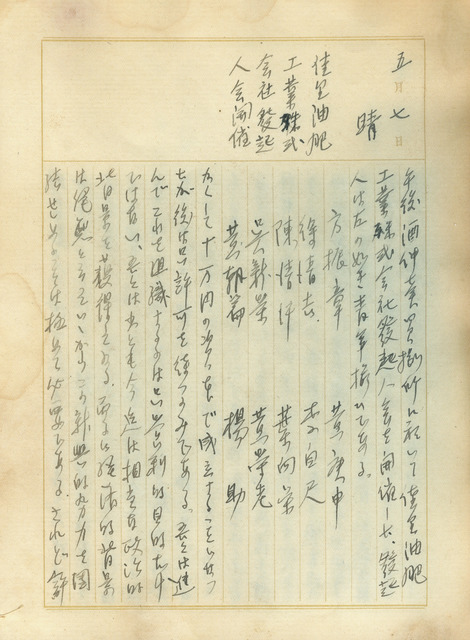 五月七日
晴
佳里油肥
工業株式
会社發起
人会開催
午後酒仲賣捌所に於いて佳里油肥
工業株式会社發起人会を開催した、發起
人は左の如き青年揃ひである。
方振章 黄庚申
徐清吉 李自尺
陳清汗 葉向榮
吳新榮 黄榮老
黄朝篇 楊助
かくして十万円の資本で成立することになつ
たが後は只許可を待つのみである。吾々は進
んでこれを組織するのは只営利的目的だけ
では无い、吾々は少くとも今迄は相当な政治的
背景を獲得してゐる。而るに経済的背景
は尾無と言っていゝからこの新興的勢力を團
結せしめることは極めて必要である。されど許